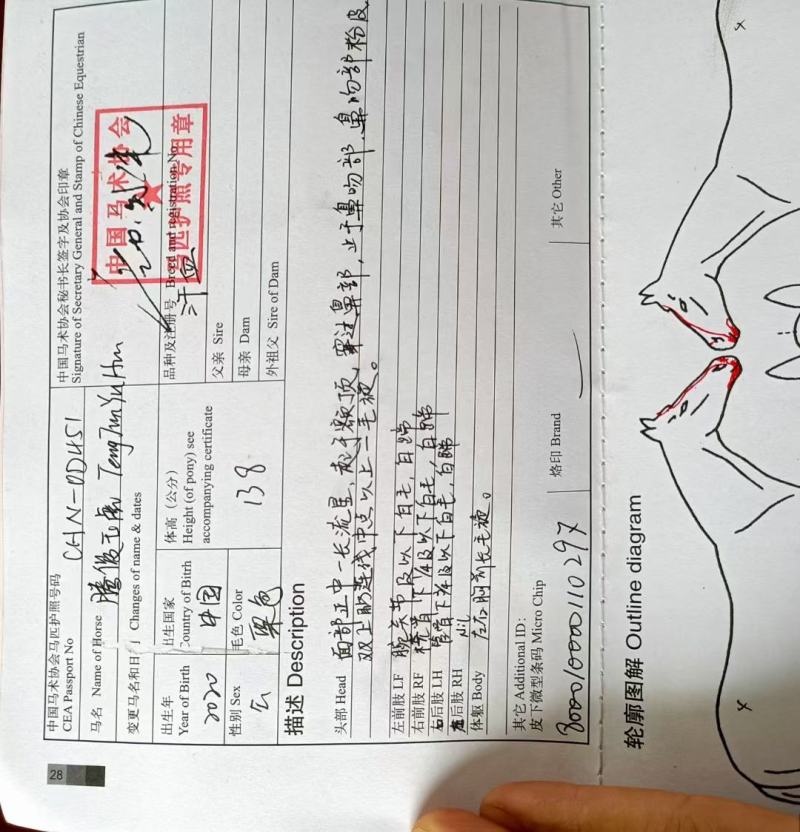 28
中国马术协会马匹护照号码
CEA Passport No
CHN-00451
中国马术协会秘书长签字及协会印章
Signature of Secretary General and Stamp of Chinese Equestrian
中国马术协会
马匹护照专用章
马名 Name of Horse
Teng Jun Yu Hu
变更马名和日 Changes of name & dates
出生年
Year of Birth
2020
出生国家
Country of Birth
中国
体高（公分）
Height (of pony) see
accompanying certificate
138
品种及注册号 Breed and registration No
汗血
性别 Sex
公
毛色 Color
栗色
父亲 Sire
母亲 Dam
外祖父 Sire of Dam
描述 Description
头部 Head 面部正中一长流星，起于额顶，穿过鼻部，止于鼻吻部，鼻吻部粉皮
双上眼连线中点以上一毛旋。
左前肢 LF 腕关节及以下白毛，白蹄
右前肢 RF 下1/4及以下白毛，白蹄
后肢 LH 管骨下1/4及以下白毛，白蹄
后肢 RH nil
体躯 Body 左右胸前长毛旋。
其它 Additional ID:
皮下微型条码 Micro Chip
烙印 Brand
其它 Other
轮廓图解 Outline diagram
x
x